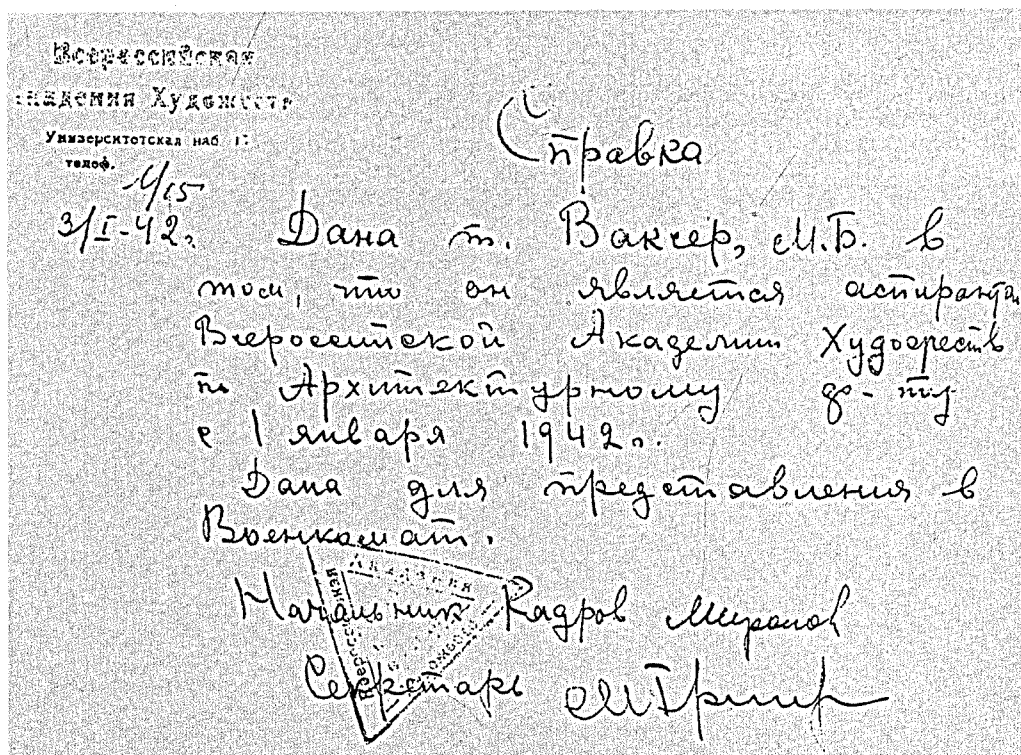 Всероссийская
Академия Художеств
Университетская наб. 17
телеф.
1/15
3/I-42г.
Справка
Дана т. Ваксер, М.Б. в
том, что он является аспирантом
Всероссийской Академии Художеств
по Архитектурному ф-ту
с 1 января 1942г.
Дана для представления в
Военкомат.
Начальник Кадров
Секретарь
Всероссийская Академия